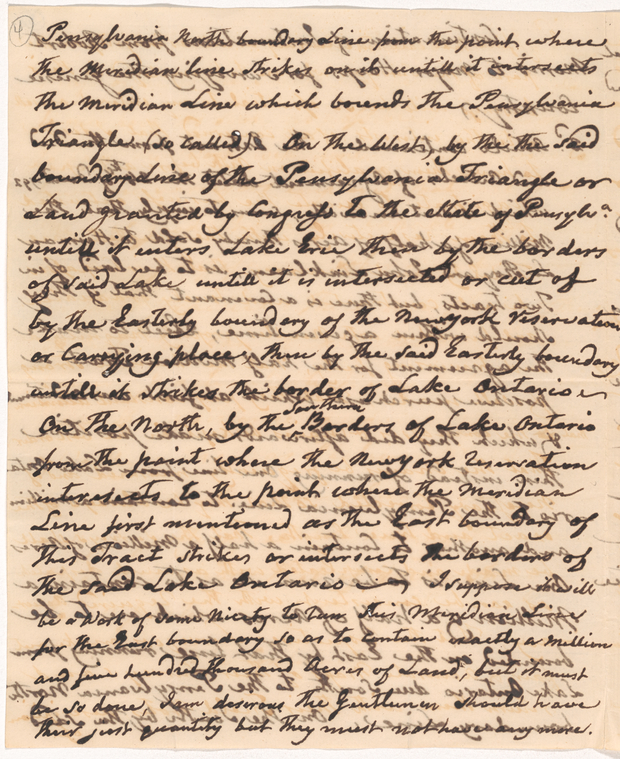 4
Pensylvania North boundary Line from the point where
the Meridian line strikes on it untill it intersects
the Meridian Line which bounds the Pensylvania
Triangle (so called). On the West, by the the said
boundary Line of the Pensylvania Triangle or
Land granted by Congress to the State of Pensylva
untill it enters Lake Erie then by the borders
of said Lake untill it is intersected or cut of
by the Easterly boundery of the New york reservation
or Carrying place, then by the said Easterly boundary
untill it strikes the border of Lake Ontario
On the North, by the Southern Borders of Lake Ontario
from the point where the New york reservation
intersects to the point where the Meridian
Line first mentioned as the East boundary of
this Tract strikes or intersects the borders of
the said Lake Ontario — I suppose it will
be a Work of some Nicety to run this Meridian Line
for the East boundary so as to contain exactly a million
and five hundred thousand Acres of Land, but it must
be so done, I am desirous the Gentlemen should have
their just quantity but they must not have any more.